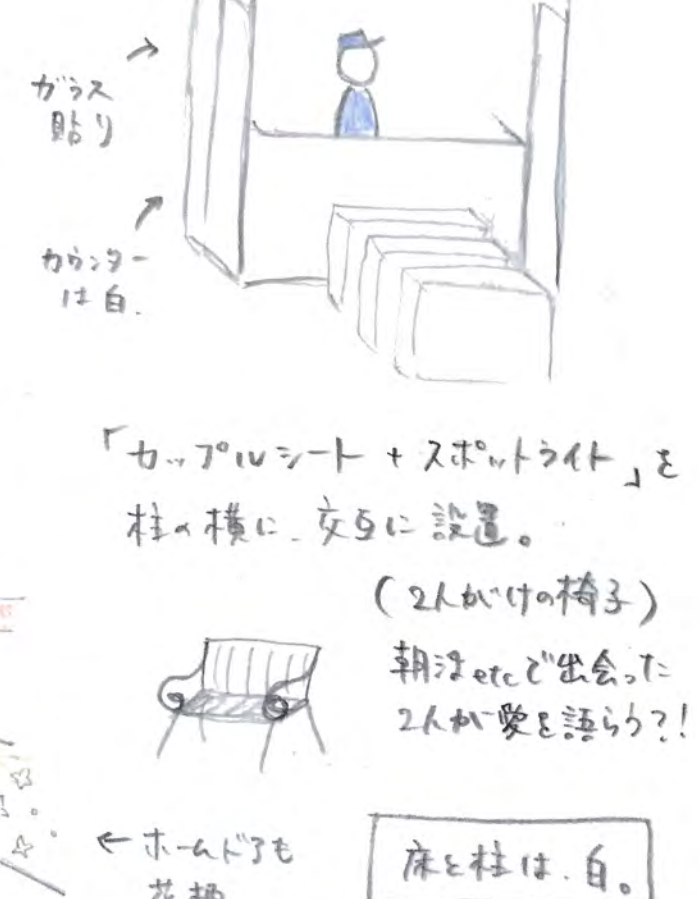 ガラス
貼り
カウンター
は白.
「カップルシート + スポットライト」を
柱の横に、交互に設置。
(2人がけの椅子)
朝活etcで出会った
2人が愛を語らう?!
←ホームドアも
花柄
床と柱は、白。